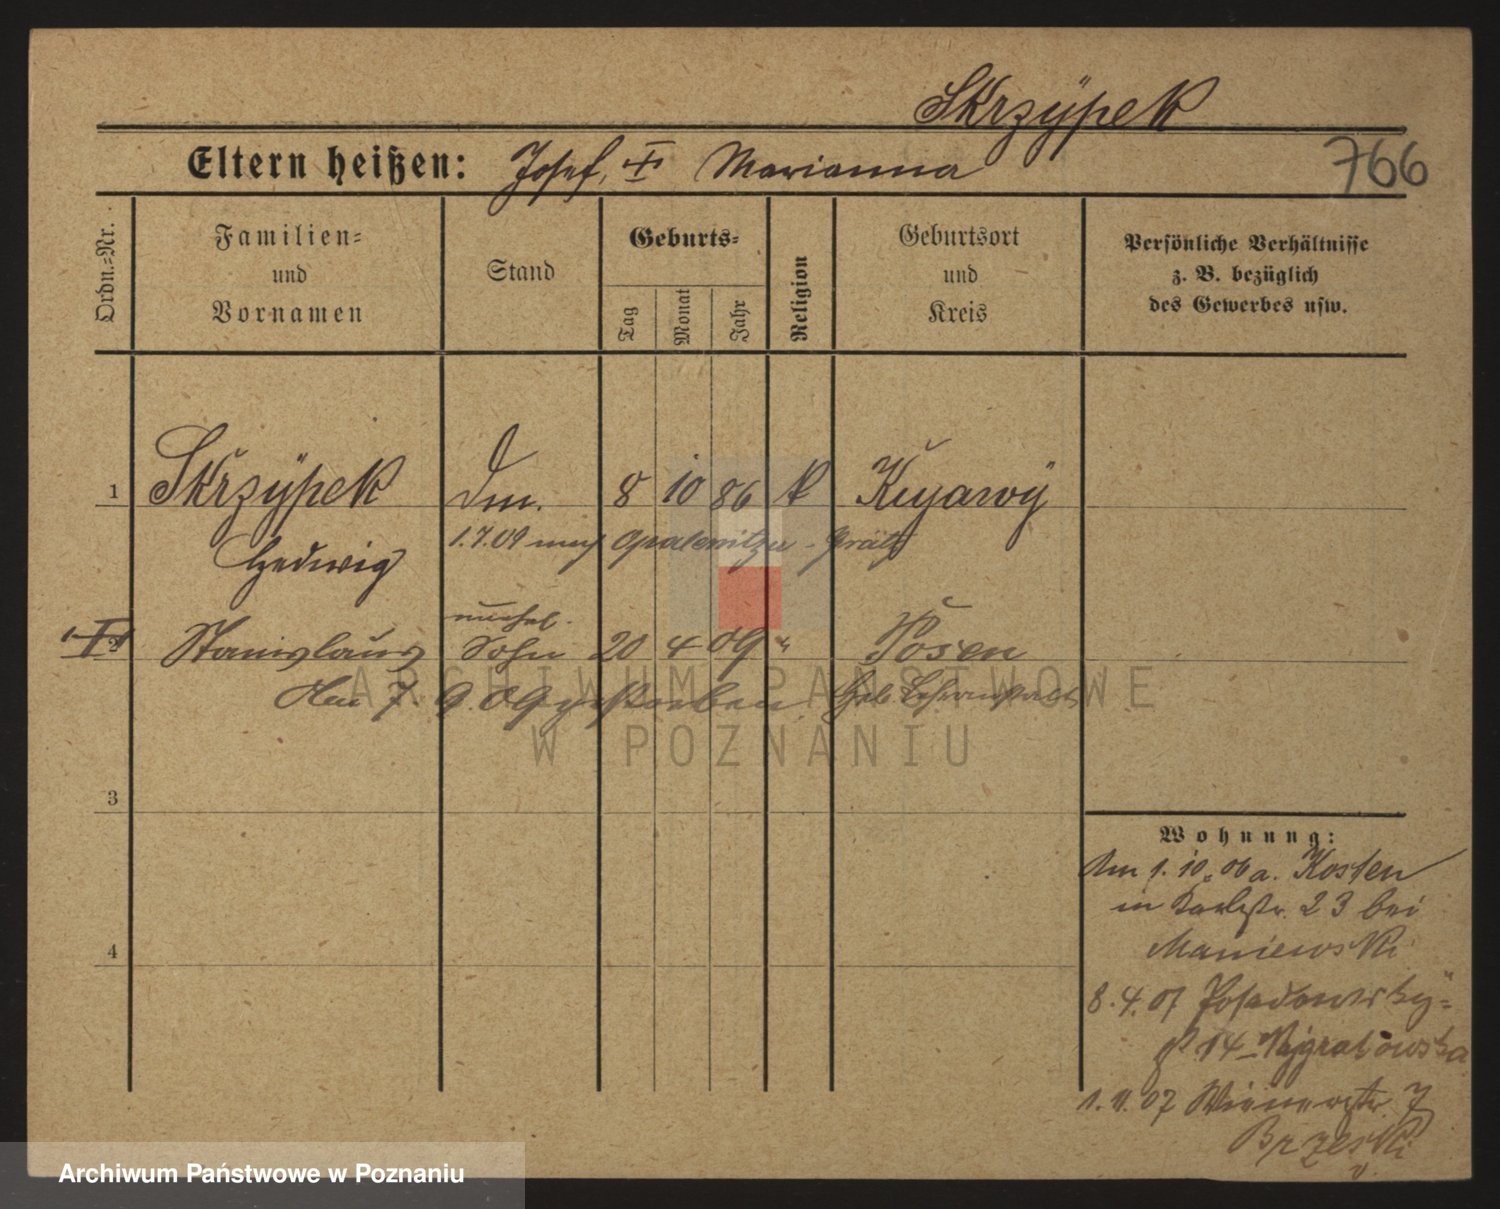 Skrzÿpek
Eltern heißen: Josef, Marianna
766
Ordn.-Nr.
Familien-
und
Vornamen
Stand
Geburts-
Tag
Monat
Jahr
Religion
Geburtsort
und
Kreis
Persönliche Verhältnisse
z. B. bezüglich
des Gewerbes usw.
1 Skrzÿpek 8 10 86 k Kuyawÿ
Hedwig 1.7.09 nach Opalenitza - Grätz
2 Stanislaus unehel. Sohn 20 4 09 " Posen
7. 9. 09 gestorben
3
4
Wohnung:
Am 1. 10. 06 a. Kosten
in 23 bei
Maniewski
8. 4. 07 Posadowsky-
14
1. 11. 07 Wienerstr. 7
Brzeski
ARCHIWUM PAŃSTWOWE
W POZNANIU
Archiwum Państwowe w Poznaniu